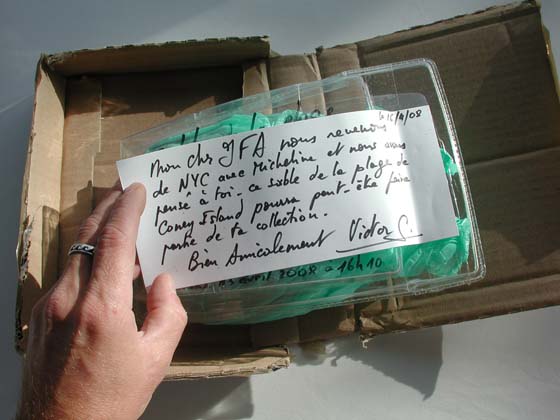 le 16/4/08
Mon cher JFA nous revenons
de NYC avec Micheline et nous avons
pensé à toi - ce sable de la plage de
Coney Island pourra peut-être faire
partie de ta collection.
Bien Amicalement Victor S.
avril 2008 à 16h10